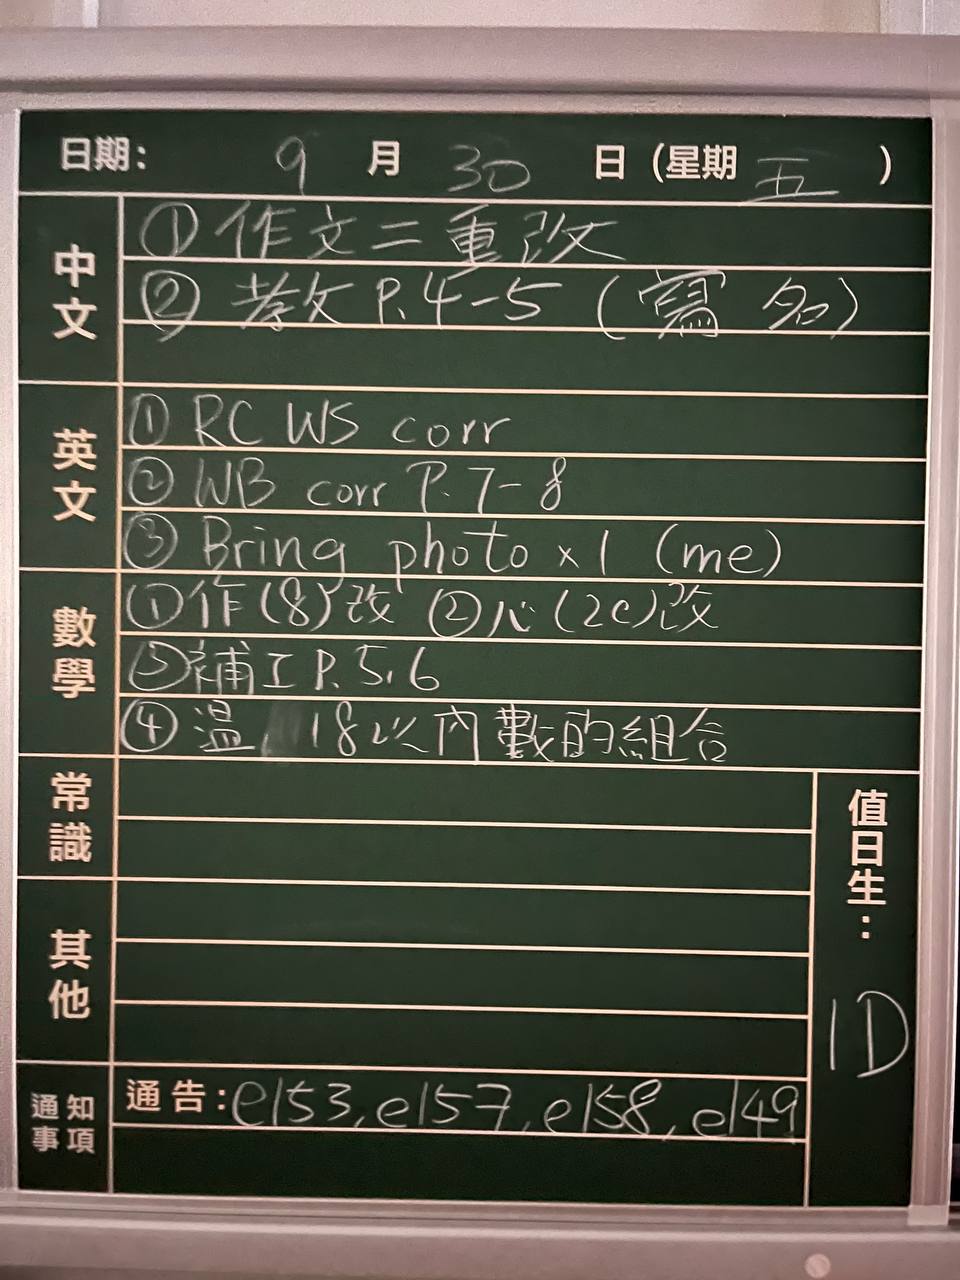 日期： 9 月 30 日 (星期 五 )
中文
① 作文二重改
② 教文 P.4-5 (寫名)
英文
① RC WS corr
② WB corr P.7-8
③ Bring photo x1 (me)
數學
① 作(8)改 ② 心(2C)改
③ 補工 P.5,6
④ 溫 18以內數的組合
常識
其他
值日生：
1D
通知事項
通告：e153, e157, e158, e149